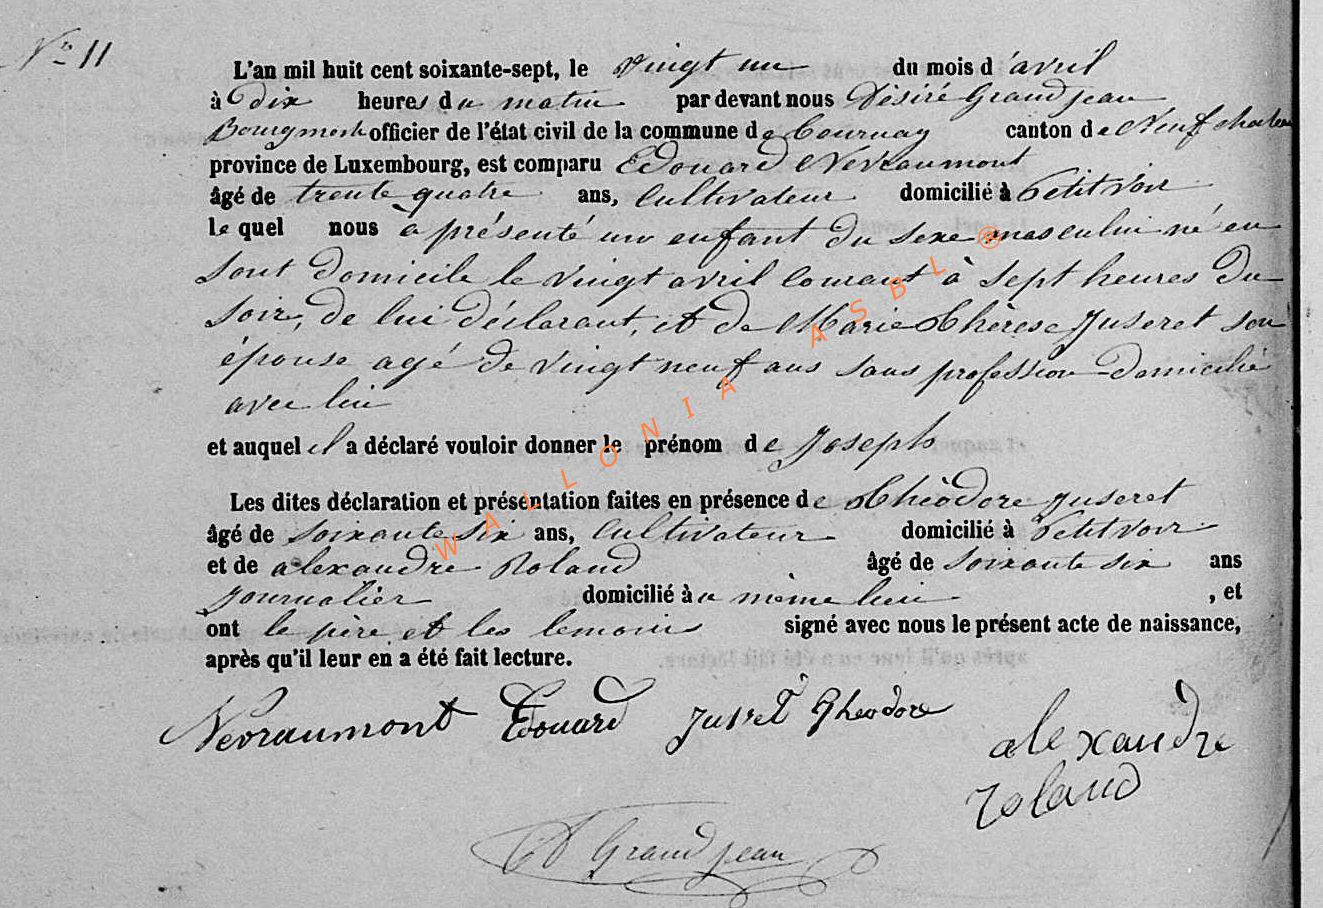 N° 11
L'an mil huit cent soixante-sept, le vingt un du mois d'avril
à dix heures du matin par devant nous Désiré Grandjean
Bourgmestre officier de l'état civil de la commune de Tournay canton de Neufchateau
province de Luxembourg, est comparu Edouard Nevraumont
âgé de trente quatre ans, Cultivateur domicilié à Petitvoir
lequel nous a présenté un enfant du sexe masculin né en
sont domicile le vingt avril courant à sept heures du
soir, de lui déclarant, et de Marie Thérèse Juseret son
épouse agé de vingt neuf ans sans profession domicilié
avec lui
et auquel il a déclaré vouloir donner le prénom de Joseph
Les dites déclaration et présentation faites en présence de Théodore Juseret
âgé de soixante six ans, Cultivateur domicilié à Petitvoir
et de alexandre Roland âgé de soixante six ans
journalier domicilié à u même lieu , et
ont le père et les temoins signé avec nous le présent acte de naissance,
après qu'il leur en a été fait lecture.
Nevraumont Edouard Jusret Theodore alexandre
roland
D Grandjean
WALLONIA ASBL ®